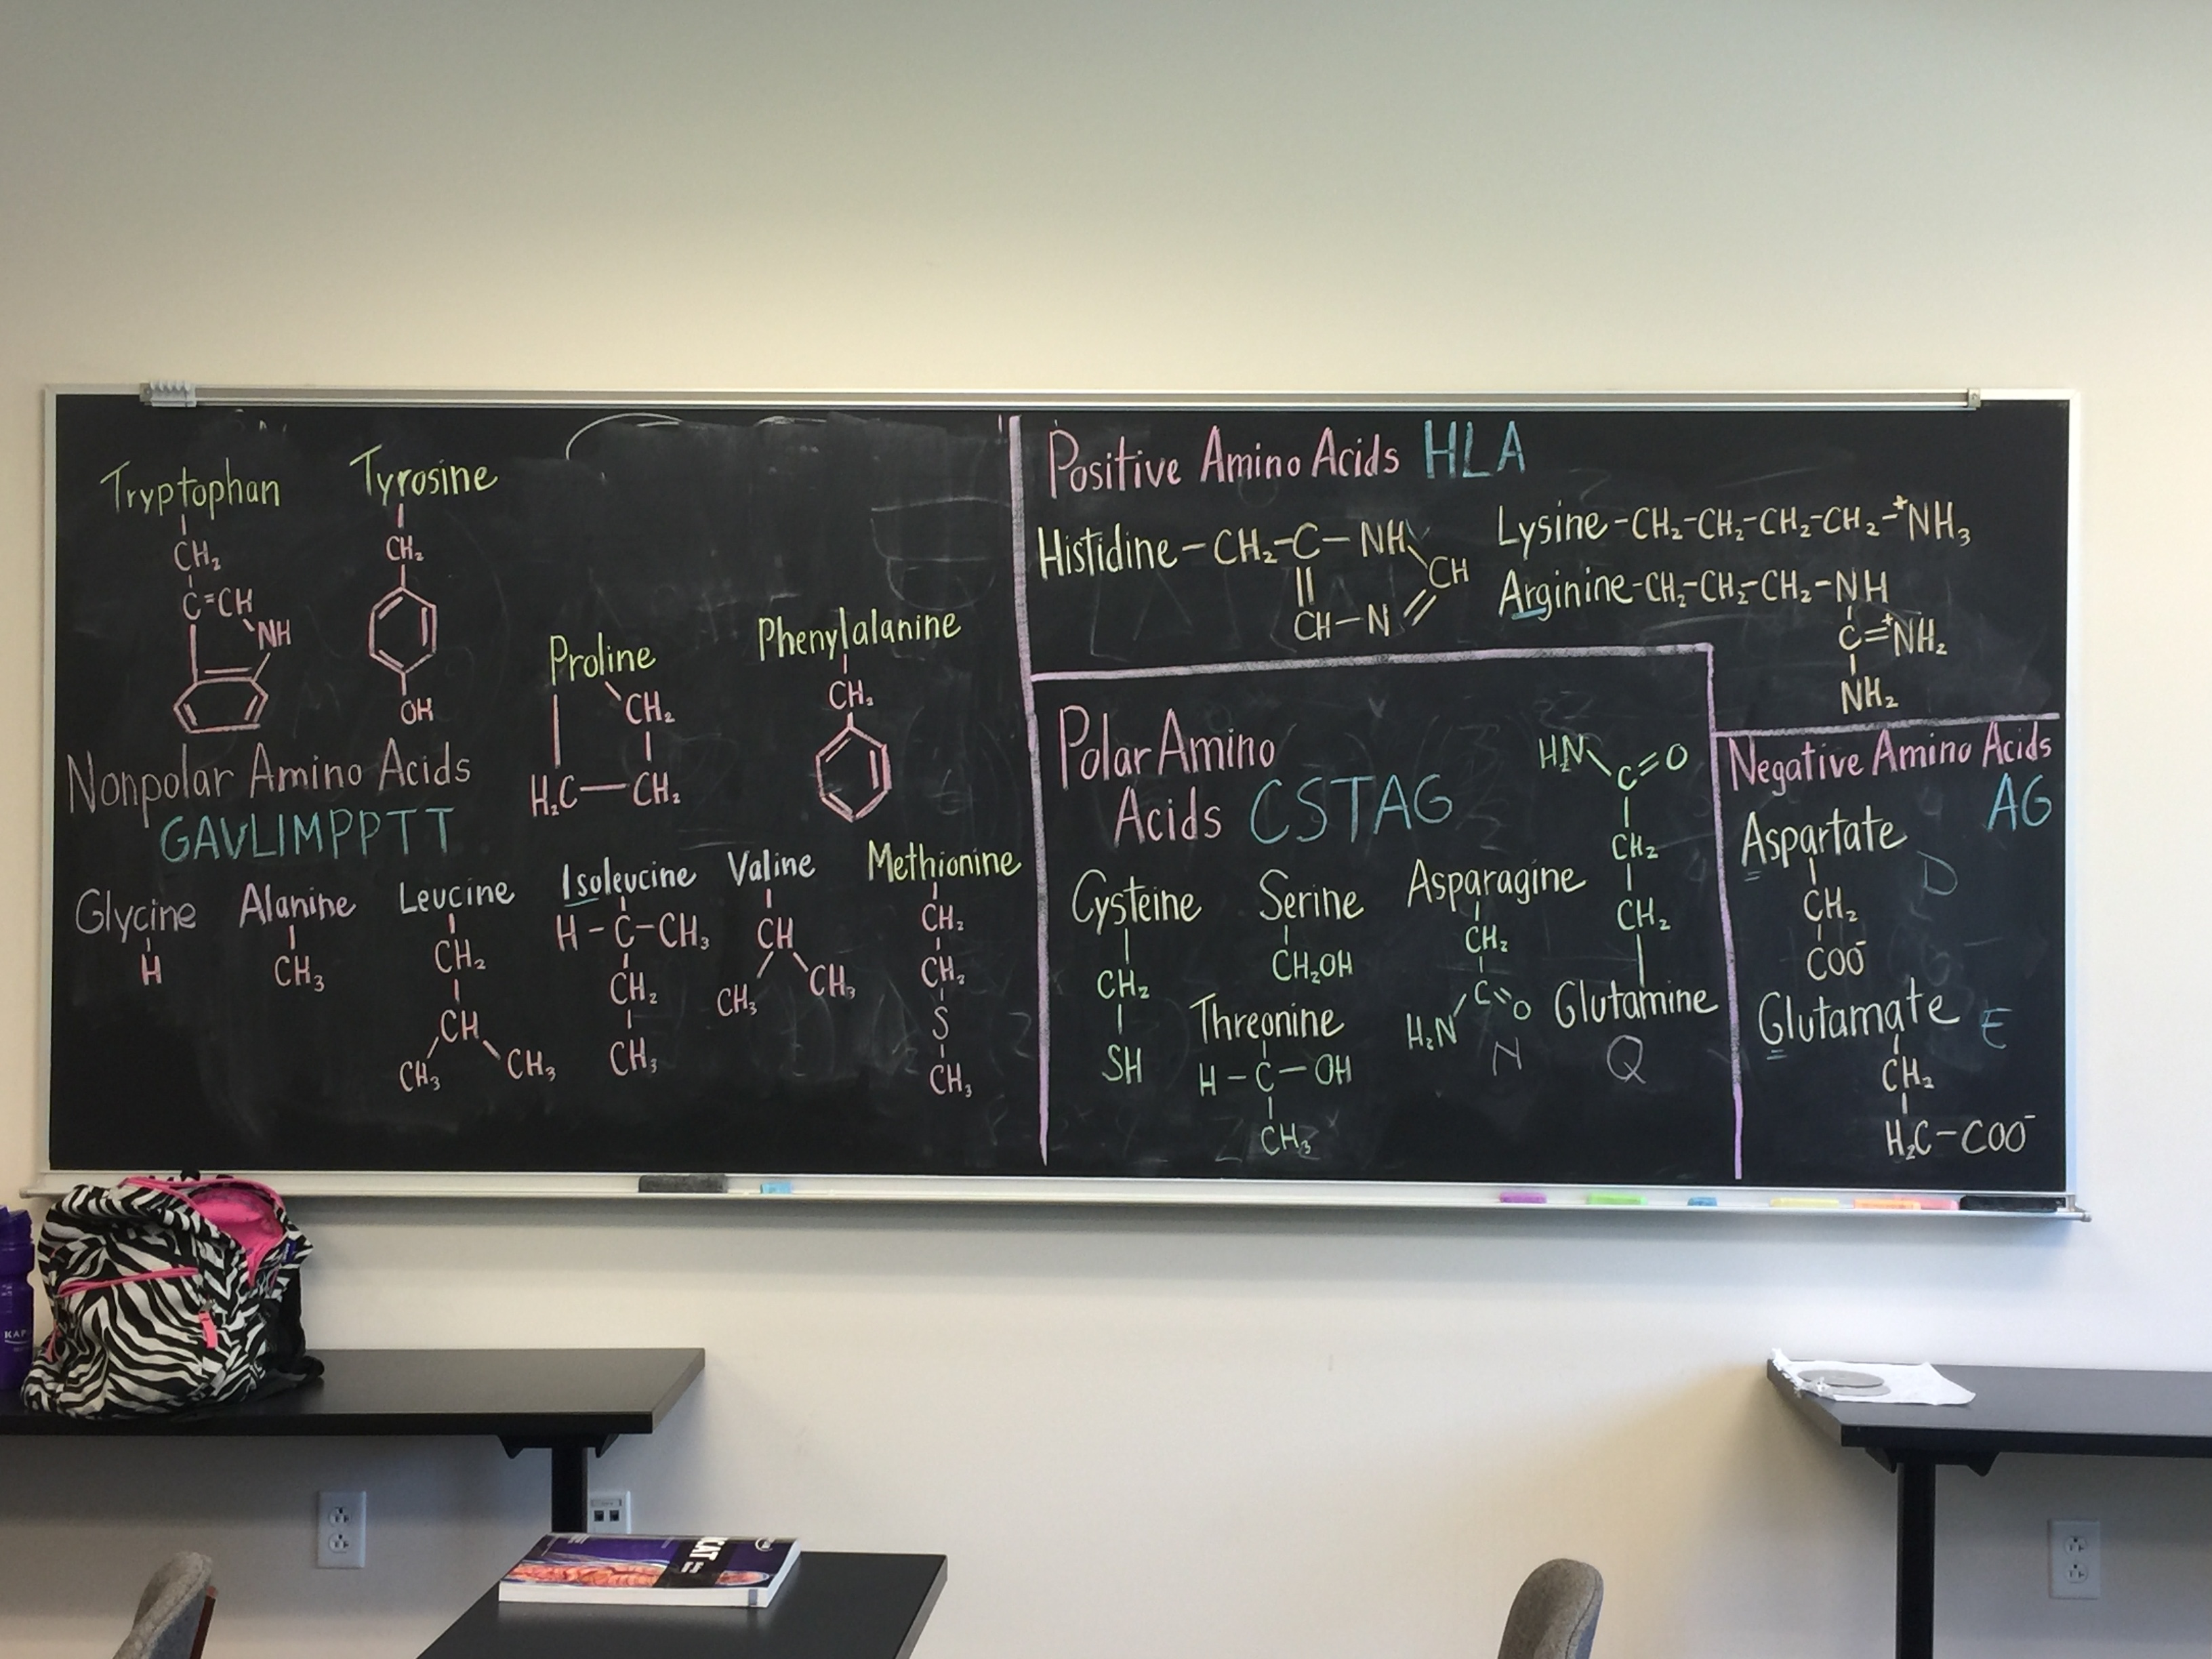 Tryptophan
CH₂
C=CH
NH
Tyrosine
CH₂
OH
Proline
CH₂
H₂C—CH₂
Phenylalanine
CH₂
Nonpolar Amino Acids
GAVLIMPPTT
Glycine
H
Alanine
CH₃
Leucine
CH₂
CH
CH₃ CH₃
Isoleucine
H-C-CH₃
CH₂
CH₃
Valine
CH
CH₃ CH₃
Methionine
CH₂
CH₂
S
CH₃
Positive Amino Acids HLA
Histidine-CH₂-C-NH
CH
CH-N
Lysine-CH₂-CH₂-CH₂-CH₂-⁺NH₃
Arginine-CH₂-CH₂-CH₂-NH
C=⁺NH₂
NH₂
Polar Amino
Acids CSTAG
Cysteine
CH₂
SH
Serine
CH₂OH
Threonine
H-C-OH
CH₃
Asparagine
CH₂
C=O
H₂N
N
H₂N C=O
CH₂
CH₂
Glutamine
Q
Negative Amino Acids
AG
Aspartate
D
CH₂
COO⁻
Glutamate E
CH₂
H₂C-COO⁻
KAP
CAT